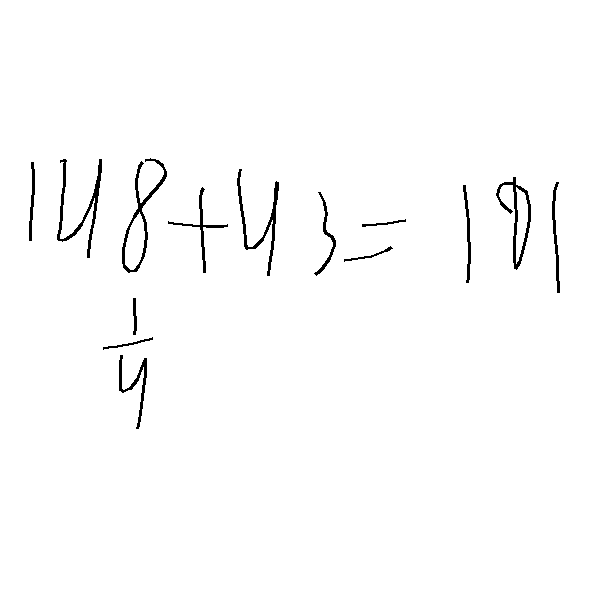 148+43=191
1/4